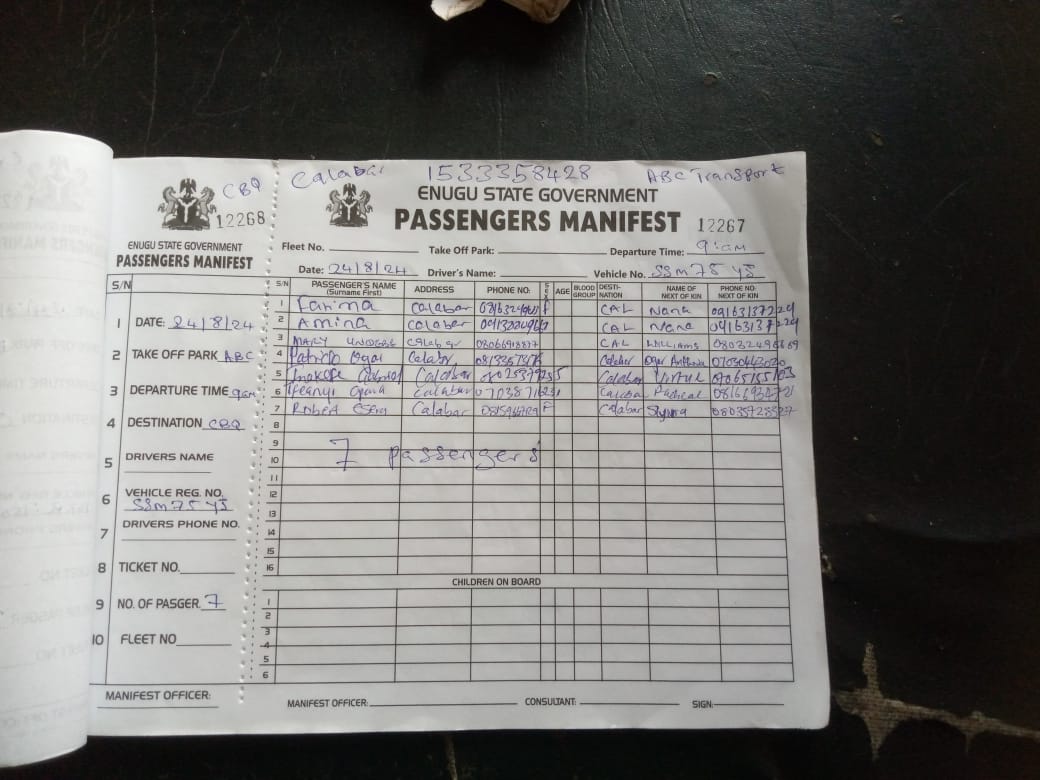 CBQ
12268
ENUGU STATE GOVERNMENT
PASSENGERS MANIFEST
S/N
1 DATE: 24/8/24
2 TAKE OFF PARK ABC
3 DEPARTURE TIME 9am
4 DESTINATION CBQ
5 DRIVERS NAME
6 VEHICLE REG. NO.
SSM75 YJ
7 DRIVERS PHONE NO.
8 TICKET NO.
9 NO. OF PASGER. 7
10 FLEET NO
MANIFEST OFFICER:
Calabar 1533358428 ABC Transport
ENUGU STATE GOVERNMENT
PASSENGERS MANIFEST 12267
Fleet No. Take Off Park: Departure Time: 9:am
Date: 24/8/24 Driver's Name: Vehicle No. SSM75 YJ
S/N PASSENGER'S NAME (Surname First) ADDRESS PHONE NO: SEX AGE BLOOD GROUP DESTINATION NAME OF NEXT OF KIN PHONE NO: NEXT OF KIN
1 Farima Calabar f CAL Nana 09163137229
2 Amina Calabar CAL Nana 09163137229
3 MARY Calabar 08066918817 CAL WILLIAMS
4 Patrick Ogar Calabar Calabar Ogar
5 Calabar Calabar Virtue
6 Ifeanyi Calabar Calabar
7 Calabar F Calabar
8
9
10
7 passengers
11
12
13
14
15
16
CHILDREN ON BOARD
1
2
3
4
5
6
MANIFEST OFFICER: CONSULTANT: SIGN: